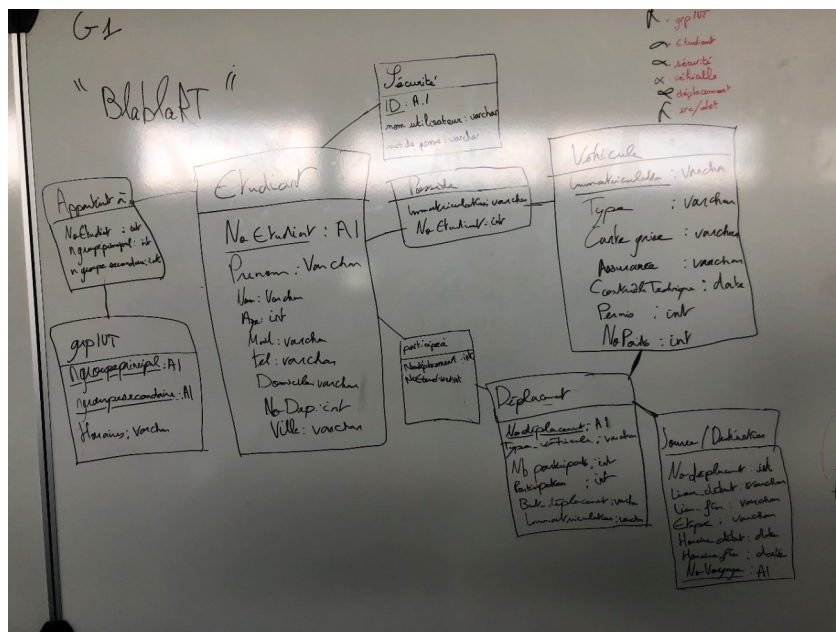 G1
" BlablaRT "
grp IUT
Etudiant
sécurité
véhicule
déplacement
src/dst
Sécurité
ID : A.I
nom utilisateur : varchar
mot de passe : varchar
Appartient à
NoEtudiant : int
n groupe principal : int
n groupe secondaire : int
Etudiant
No Etudiant : AI
Prenom : Varchar
Nom : Varchar
Age : int
Mail : varchar
tel : varchar
Domicile : varchar
No Dep : int
Ville : varchar
Possède
Immatriculation : varchar
No Etudiant : int
Véhicule
Immatriculation : Varchar
Type : Varchar
Carte grise : varchar
Assurance : varchar
Contrôle Technique : date
Permis : int
No Ports : int
grp IUT
n groupe principal : AI
n groupe secondaire : AI
Horaires : Varchar
participe à
No déplacement : int
Déplacement
No déplacement : AI
Type_véhicule : varchar
Nb participants : int
Participation : int
But_déplacement : varchar
Immatriculation : varchar
Source / Destination
No déplacement : int
Lieu_début : varchar
Lieu_fin : varchar
Etape : varchar
Heure_début : date
Heure_fin : date
No Voyage : AI